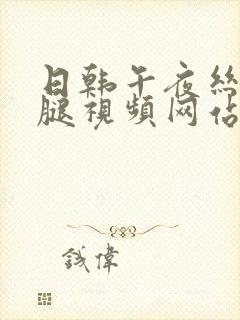 日韩午夜丝
腿视频网站
钱伟